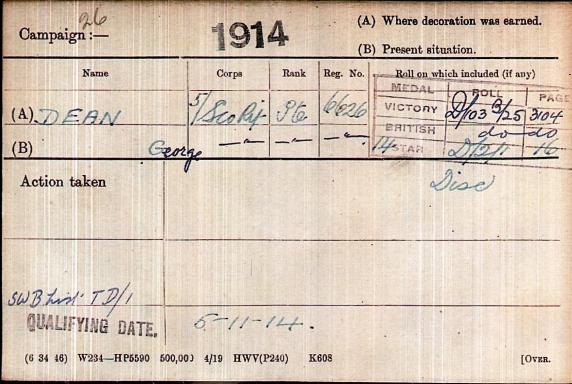 26
Campaign :—
1914
(A) Where decoration was earned.
(B) Present situation.
Name Corps Rank Reg. No. Roll on which included (if any)
MEDAL ROLL PAGE
(A) DEAN 5/Sco Rif Pte 6626 VICTORY D/103 B/25 3104
BRITISH do do
(B) George —"— —"— —"— 14 STAR D/2/1 16
Action taken Disc
SWB List TD/1
QUALIFYING DATE. 5-11-14.
(6 34 46) W234—HP5590 500,000 4/19 HWV(P240) K608 [OVER.